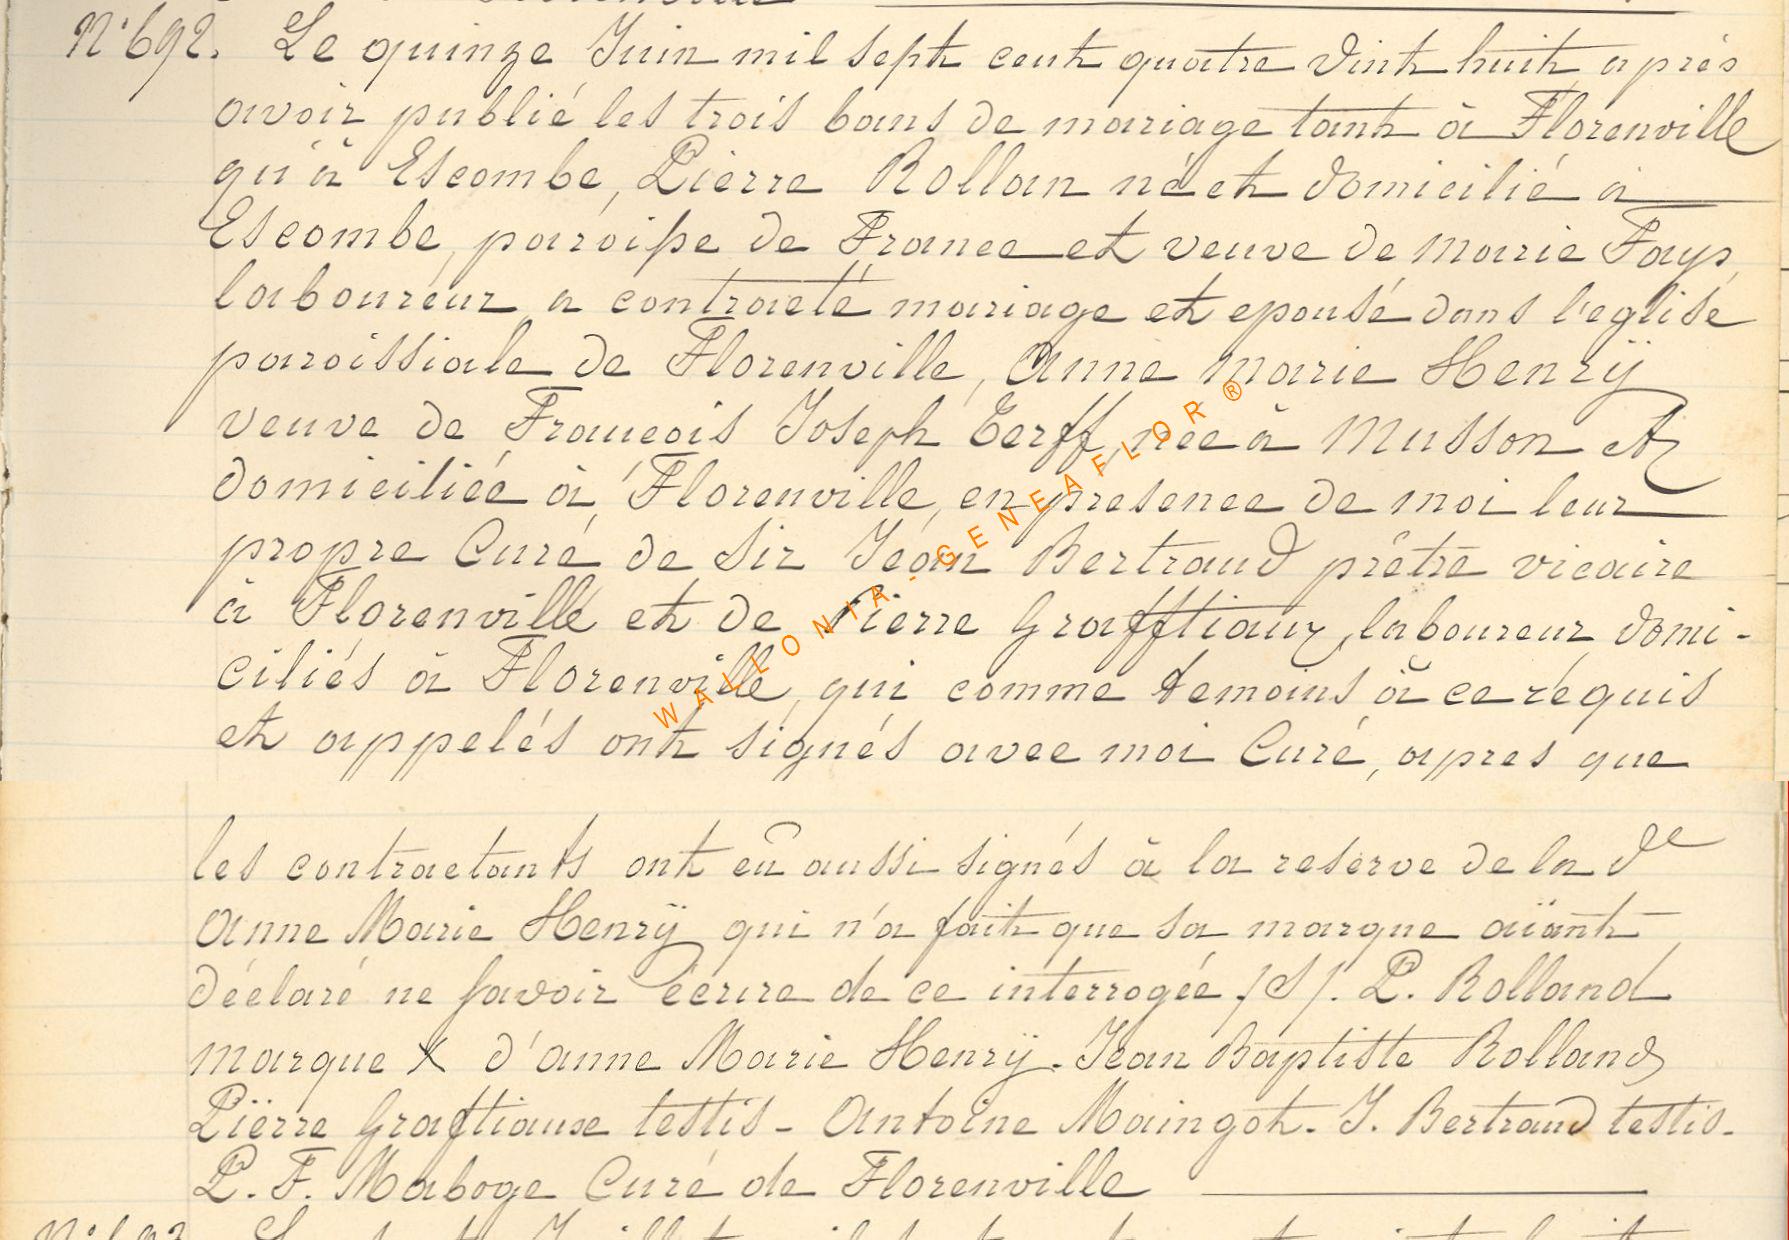 N° 692. Le quinze Juin mil sept cent quatre vint huit après
avoir publié les trois bans de mariage tant à Florenville
qu'à Escombe, Pierre Rollan né et domicilié à
Escombe, paroisse de France et veuve de Marie Fays,
laboureur a contracté mariage et epousé dans l'eglise
paroissiale de Florenville, Anne Marie Henrÿ
veuve de Francois Joseph Terff, née à Musson et
domiciliée à Florenville, en presence de moi leur
propre Curé de Sir Jean Bertrand prêtre vicaire
à Florenville et de Pierre Grafftiaux, laboureur domi-
ciliés à Florenville, qui comme temoins à ce réquis
et appelés ont signés avec moi Curé, apres que
les contractants ont eu aussi signés à la reserve de la de
Anne Marie Henrÿ qui n'a fait que sa marque aïant
déclaré ne savoir écrire de ce interrogée /S/. P. Rolland
marque X d'anne Marie Henrÿ. Jean Baptiste Rolland
Pïerre Graftiaux testis - Antoine Maingot. J. Bertrand testis.
P. F. Maboge Curé de Florenville
WALLONIA.GENEAFLOR®